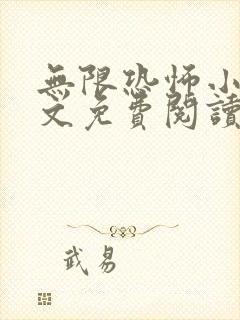 無限恐怖小
文免費閱讀
武易